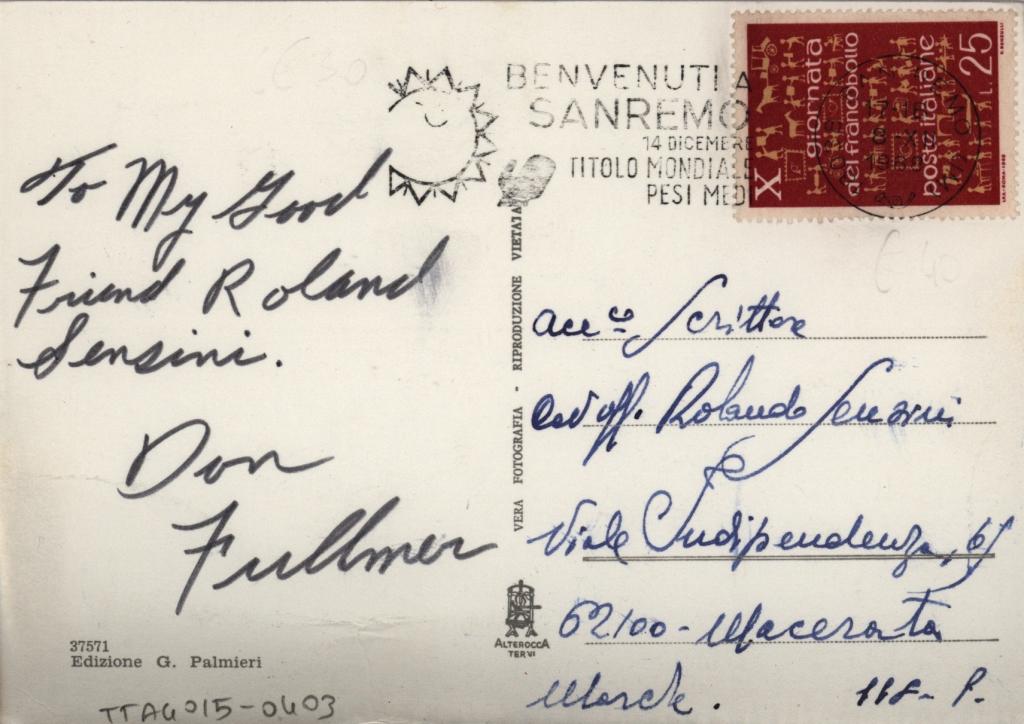 BENVENUTI A
SANREMO
14 DICEMBRE
TITOLO MONDIALE
PESI MED
X giornata
del francobollo
poste italiane
L. 25
17-18
8 X
1968
To My Good
Friend Roland
Sensini.
Don
Fullmer
VERA FOTOGRAFIA - RIPRODUZIONE VIETATA
Scrittore
Cav Uff. Rolando Sensini
Viale Indipendenza,
62100 - Macerata
Marche.
118- P.
ALTEROCCA
TERNI
37571
Edizione G. Palmieri
TTA4015-0403